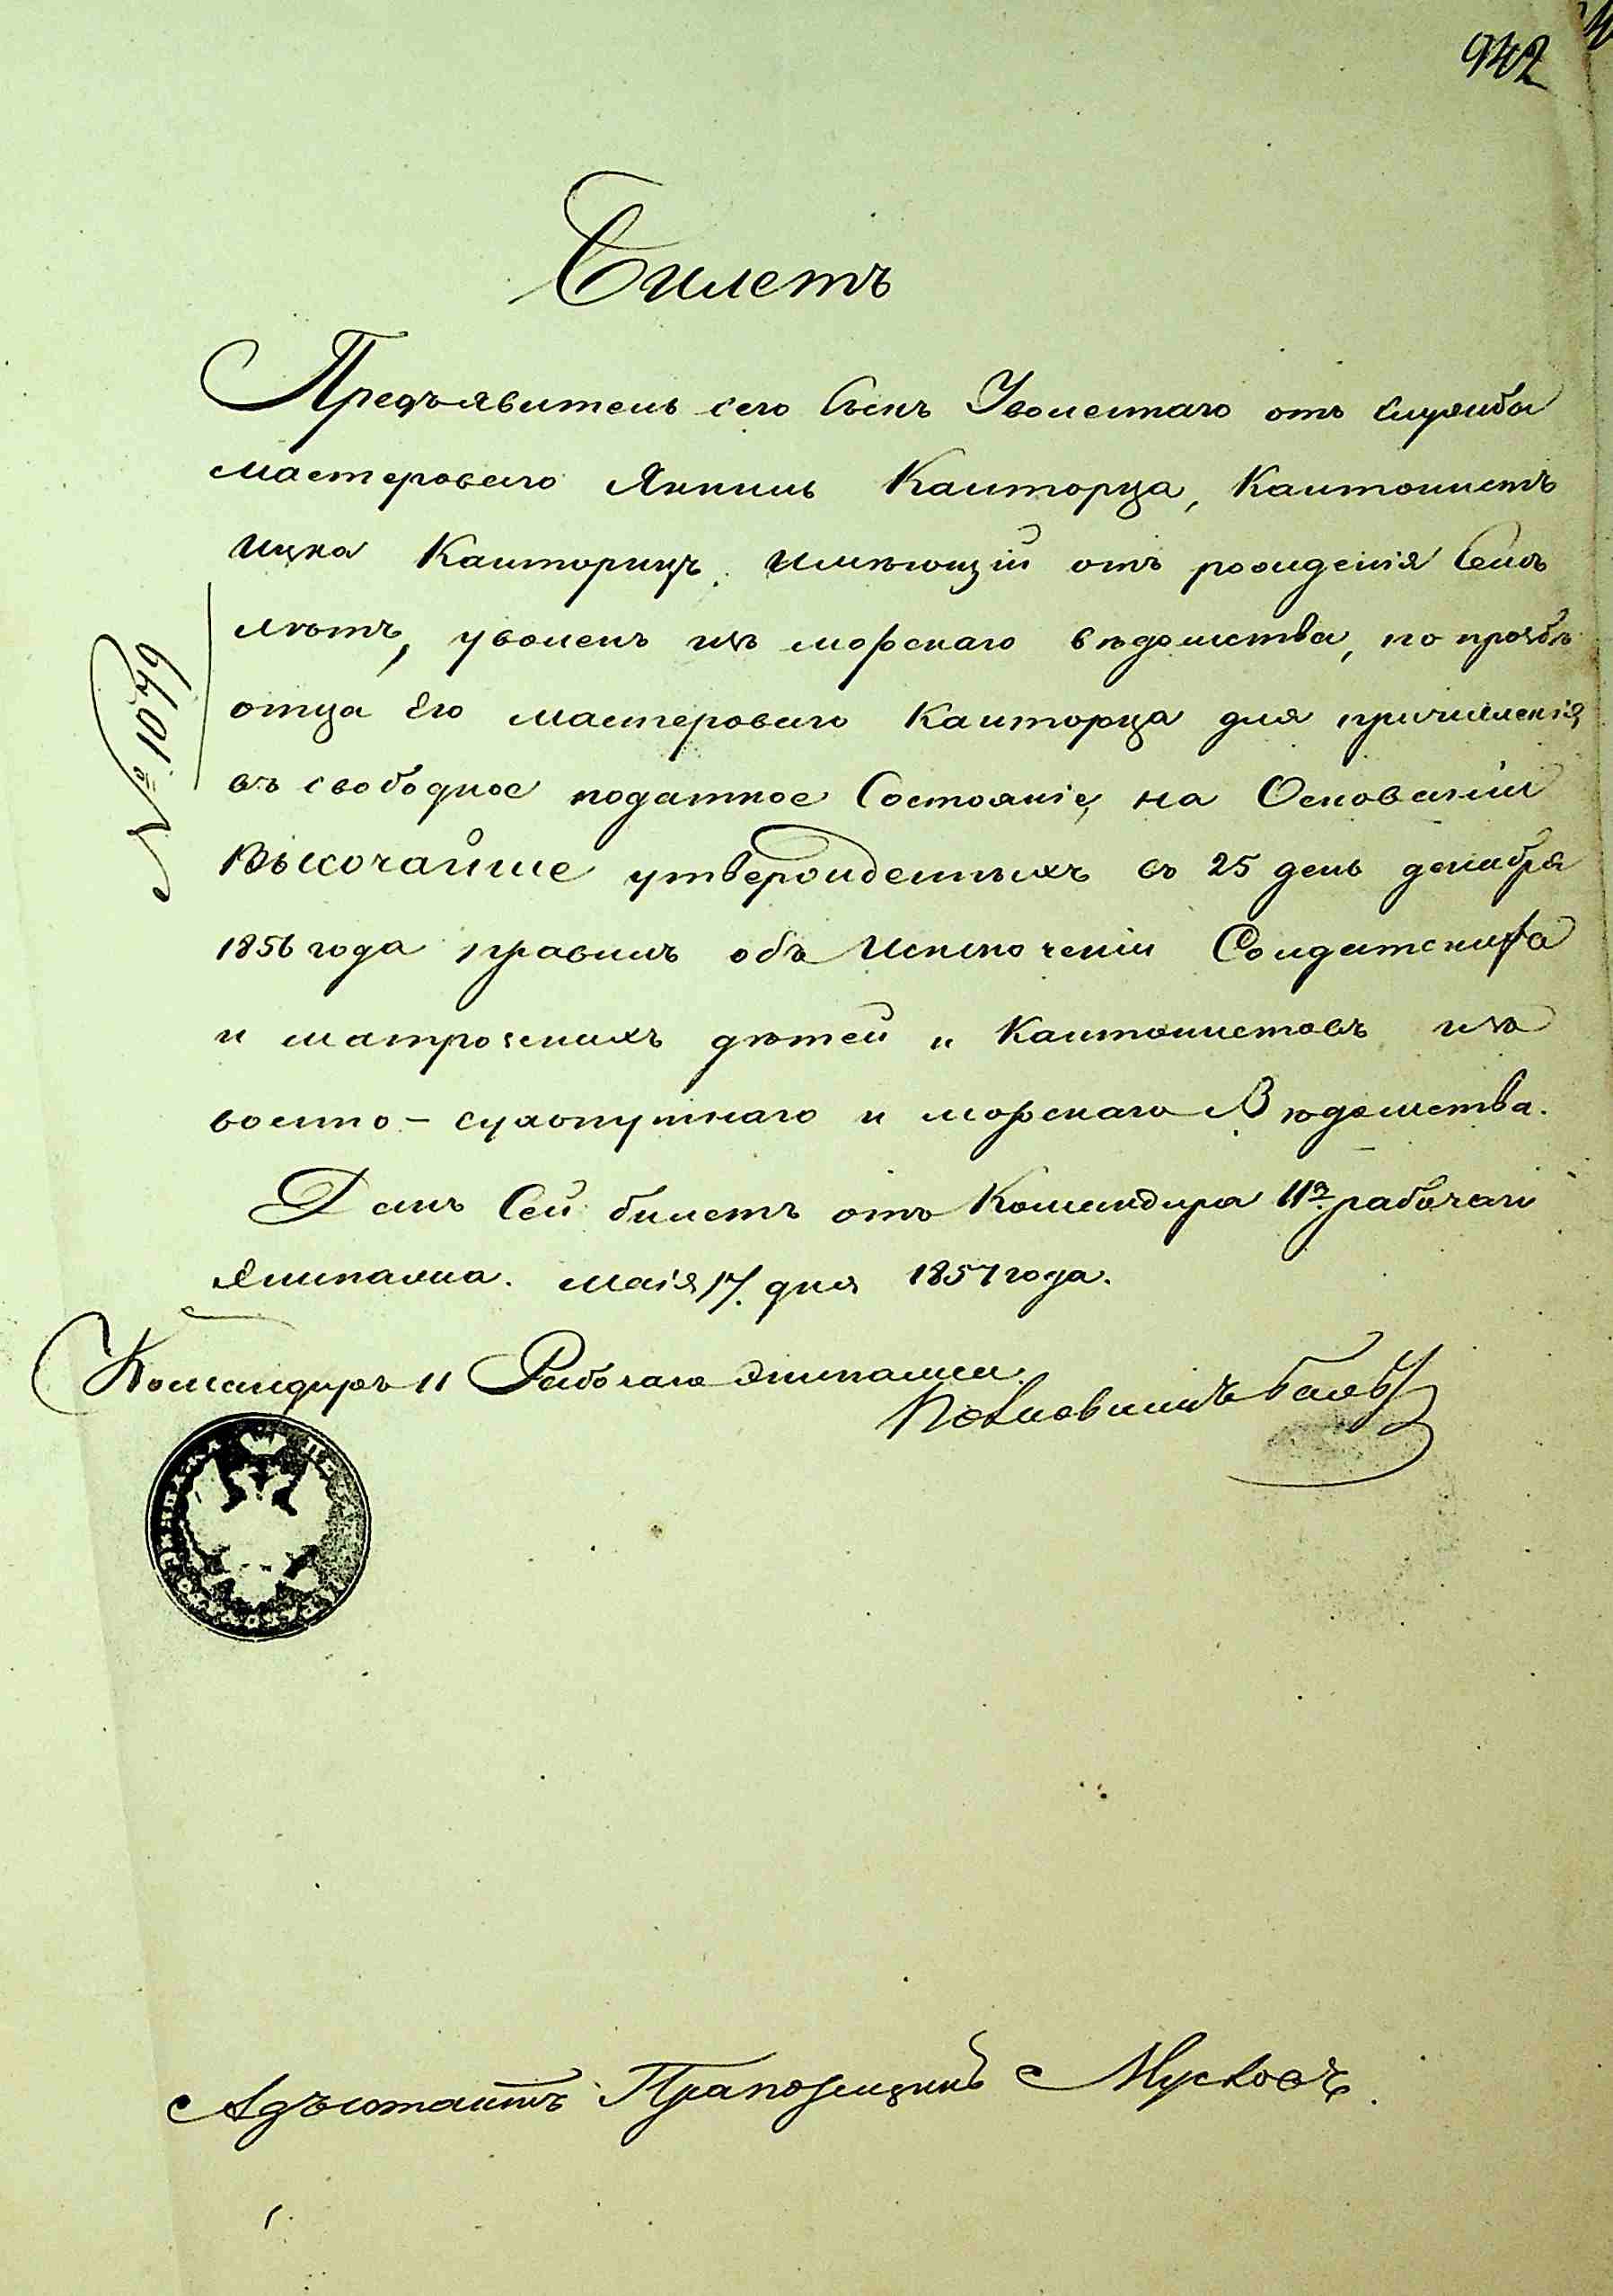 942
Билетъ
Предъявитель сего Сынъ Уволеннаго отъ службы
мастероваго Янкиль Канторца, Кантонистъ
Ицка Канторицъ, имѣющій отъ рожденія Семь
лѣтъ, уволенъ изъ морскаго вѣдомства, по прозьбѣ
отца Его мастероваго Канторца для причисленія
въ свободное податное Состояніе, на Основаніи
Высочайше утвержденныхъ въ 25 день декабря
1856 года правилъ объ Исключеніи Солдатскихъ
и матроскихъ дѣтей и Кантонистовъ изъ
военно-сухопутнаго и морскаго Вѣдомства.
Данъ Сей билетъ отъ Командира 11го рабочаго
Экипажа. Маія 17. дня 1857 года.
№ 1079
Командиръ 11 Рабочаго Экипажа.
Полковникъ
Адъютантъ Прапорщикъ Мусковъ.